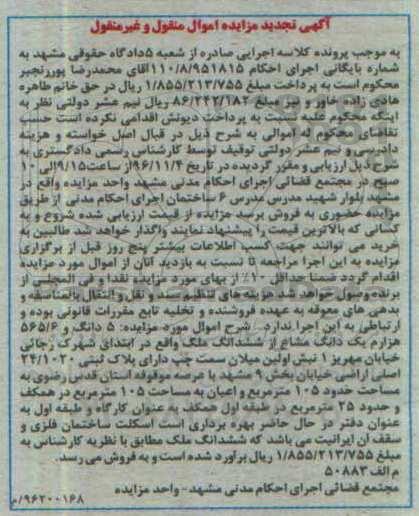 آگهی تجدید مزایده اموال منقول و غیرمنقول
به موجب پرونده کلاسه اجرایی صادره از شعبه ۵دادگاه حقوقی مشهد به
شماره بایگانی اجرای احکام ۱۱۰/۸/۹۵۱۸۱۵آقای محمدرضا پوررنجبر
محکوم است به پرداخت مبلغ ۱/۸۵۵/۲۱۳/۷۵۵ ریال در حق خانم طاهره
هادی زاده خاور و نیز مبلغ ۸۶/۲۴۲/۱۸۲ ریال نیم عشر دولتی نظر به
اینکه محکوم علیه نسبت به پرداخت دیونش اقدامی نکرده است حسب
تقاضای محکوم له اموالی به شرح ذیل در قبال اصل خواسته و هزینه
دادرسی و نیم عشر دولتی توقیف توسط کارشناس رسمی دادگستری به
شرح ذیل ارزیابی و مقرر گردیده در تاریخ ۹۶/۱۱/۴از ساعت۹/۱۵الی ۱۰
صبح در مجتمع قضائی اجرای احکام مدنی مشهد واحد مزایده واقع در
مشهد بلوار شهید مدرس مدرس ۶ ساختمان اجرای احکام مدنی از طریق
مزایده حضوری به فروش برسد مزایده از قیمت ارزیابی شده شروع و به
کسانی که بالاترین قیمت را پیشنهاد نمایند واگذار خواهد شد طالبین به
خرید می توانند جهت کسب اطلاعات بیشتر پنج روز قبل از برگزاری
مزایده به این اجرا مراجعه تا نسبت به بازدید آنان از اموال مورد مزایده
اقدام گردد ضمنا حداقل ۱۰٪ از بهای مورد مزایده نقدا و فی المجلس از
برنده وصول خواهد شد هزینه های تنظیم سند و نقل و انتقال بالمناصفه و
بدهی های معوقه به عهده فروشنده و تخلیه تابع مقررات قانونی بوده و
ارتباطی به این اجرا ندارد. شرح اموال مورد مزایده: ۵ دانگ و ۵۶۵/۶
هزارم یک دانگ مشاع از ششدانگ ملک واقع در ابتدای شهرک رجائی
خیابان مهریز ۱ نبش اولین میلان سمت چپ دارای پلاک ثبتی ۲۴/۱۰۲۰
اصلی اراضی خیابان بخش ۹ مشهد با عرصه موقوفه آستان قدس رضوی به
مساحت حدود ۱۰۵ مترمربع و اعیان به مساحت ۱۰۵ مترمربع در همکف
و حدود ۲۵ مترمربع در طبقه اول همکف به عنوان کارگاه و طبقه اول به
عنوان دفتر در حال حاضر بهره برداری است اسکلت ساختمان فلزی و
سقف آن ایرانیت می باشد که ششدانگ ملک مطابق با نظریه کارشناس به
مبلغ ۱/۸۵۵/۲۱۳/۷۵۵ ریال برآورد شده است و به فروش می رسد.
م الف ۵۰۸۸۳
مجتمع قضائی اجرای احکام مدنی مشهد- واحد مزایده
۹۶۲۰۰۱۶۸/م